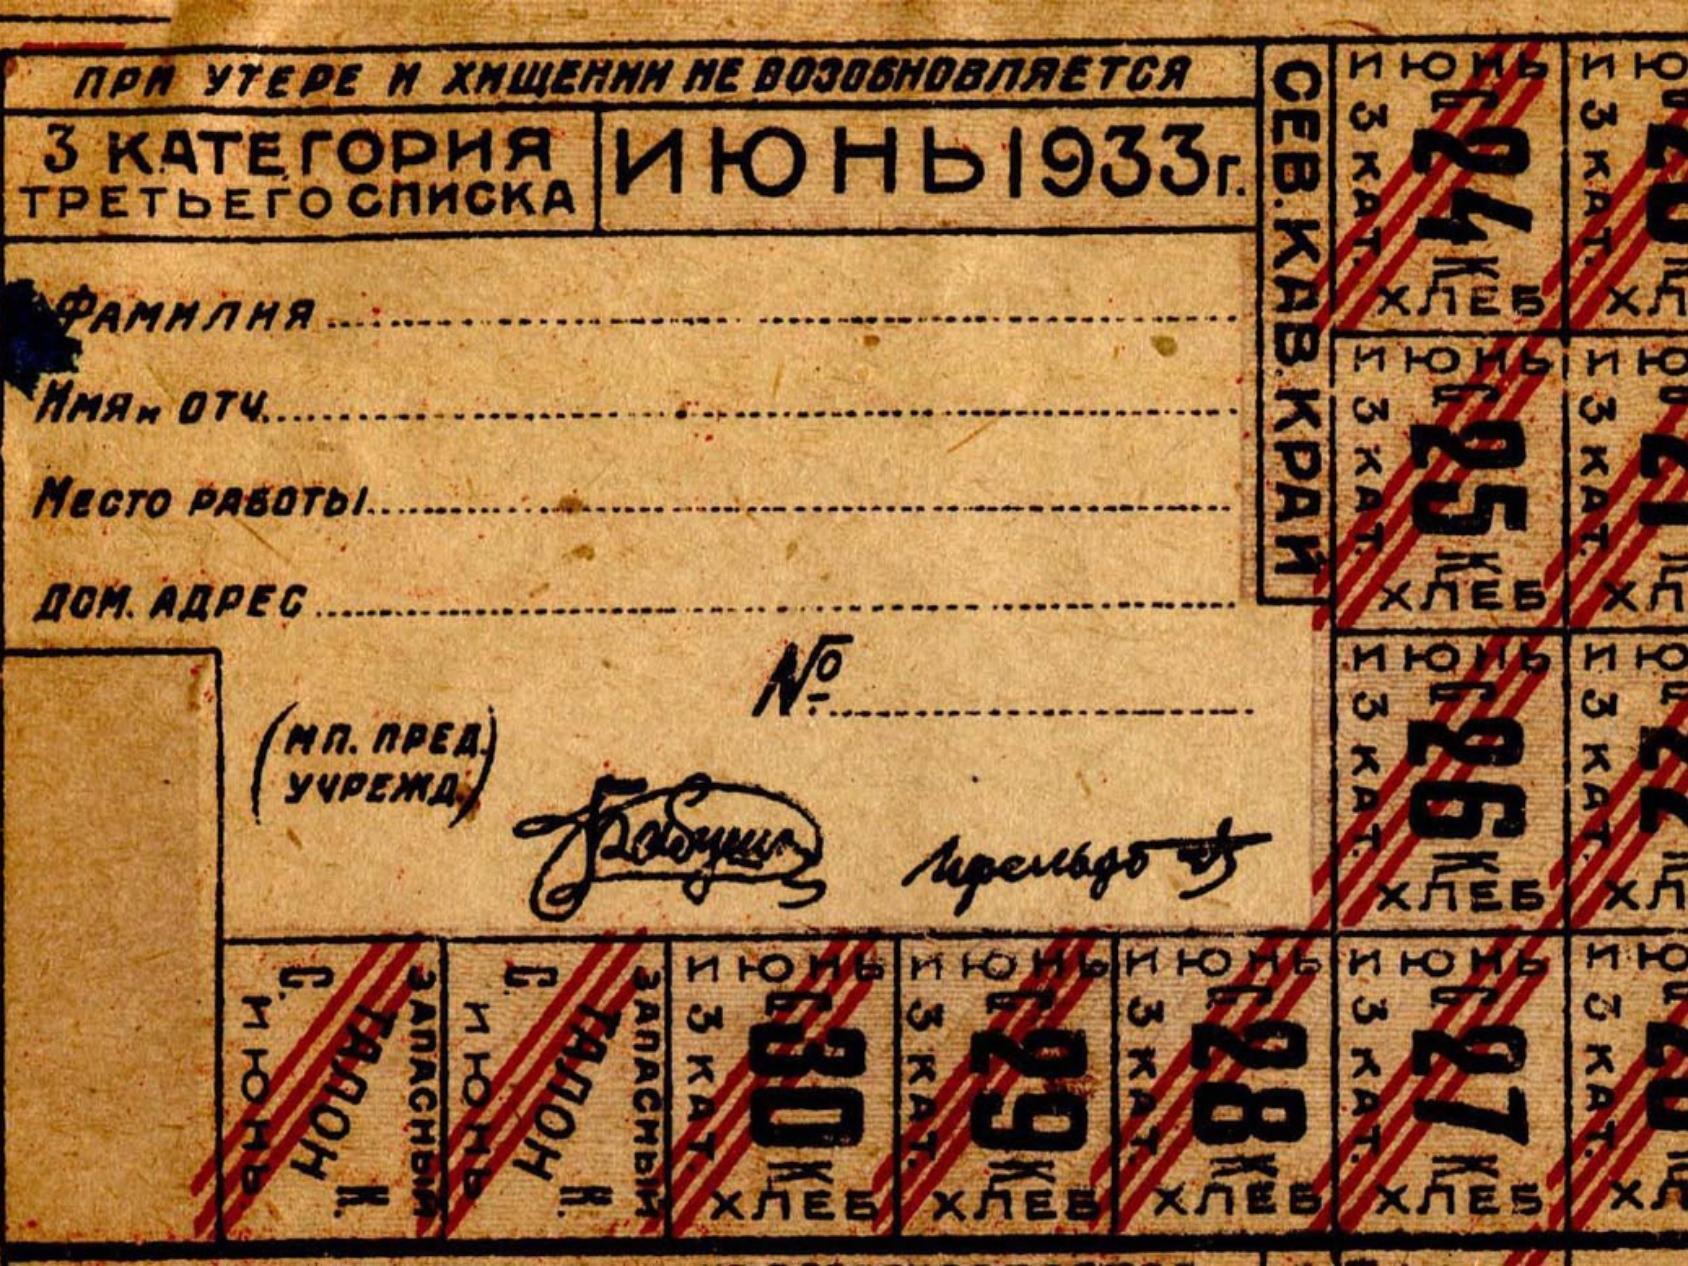 ПРИ УТЕРЕ И ХИЩЕНИИ НЕ ВОЗОБНОВЛЯЕТСЯ
3 КАТЕГОРИЯ
ТРЕТЬЕГО СПИСКА
ИЮНЬ 1933г.
СЕВ. КАВ. КРАЙ
ФАМИЛИЯ
ИМЯ и ОТЧ.
МЕСТО РАБОТЫ
ДОМ. АДРЕС
№
(МП. ПРЕД.
УЧРЕЖД.)
ИЮНЬ
3 КАТ.
С 24 К
ХЛЕБ
ИЮНЬ
3 КАТ.
С 25 К
ХЛЕБ
ИЮНЬ
3 КАТ.
С 26 К
ХЛЕБ
С. К.
ИЮНЬ
ТАЛОН
ЗАПАСНЫЙ
С. К.
ИЮНЬ
ТАЛОН
ЗАПАСНЫЙ
ИЮНЬ
3 КАТ.
С 30 К
ХЛЕБ
ИЮНЬ
3 КАТ.
С 29 К
ХЛЕБ
ИЮНЬ
3 КАТ.
С 28 К
ХЛЕБ
ИЮНЬ
3 КАТ.
С 27 К
ХЛЕБ
3 КАТ.
3 КАТ.
3 КАТ.
3 КАТ.